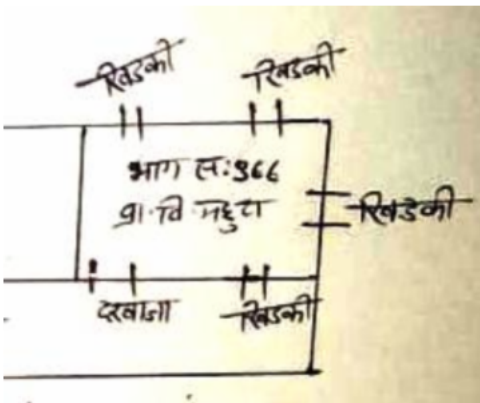 खिडकी
खिडकी
भाग सं:366
प्रा.वि.महुरा
खिडकी
दरवाजा
खिडकी